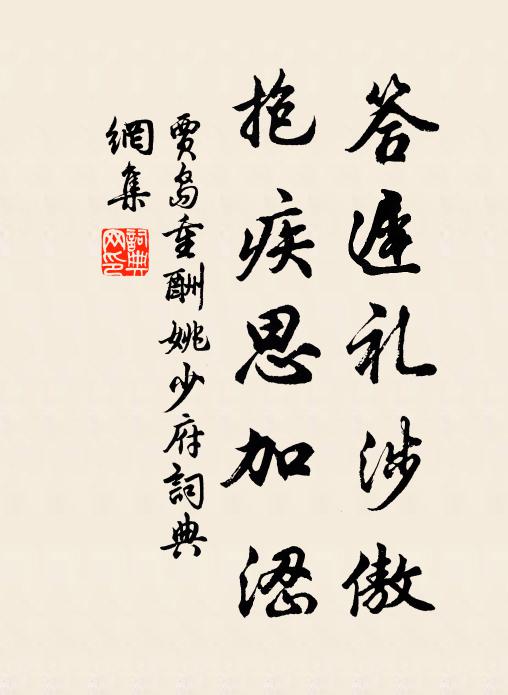 答遲礼涉傲
抱疾思加澀
賈島重酬姚少府詞典
網集
詞典
网印